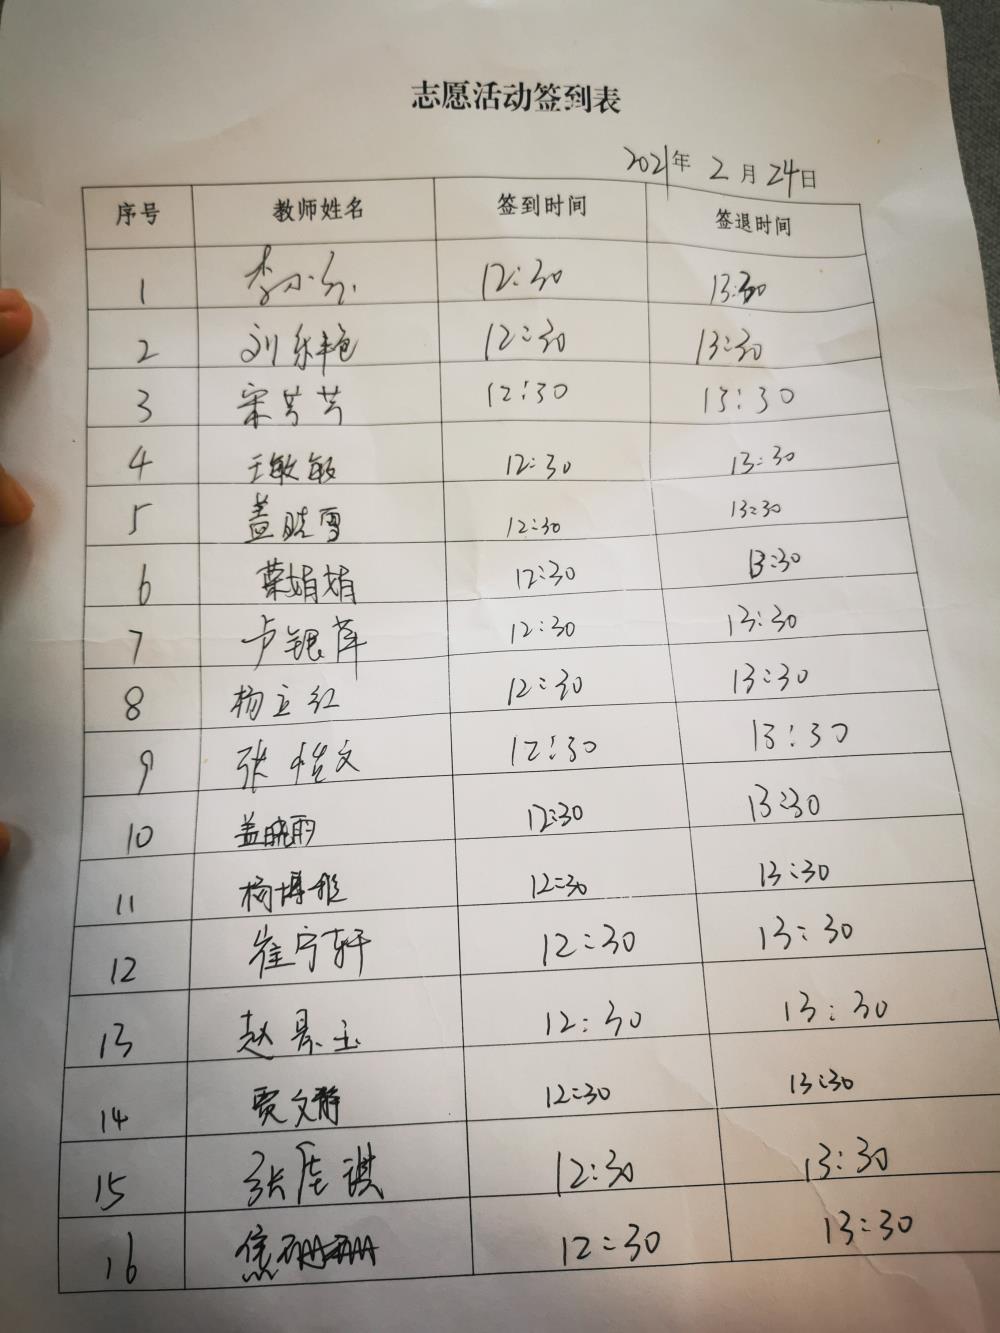 志愿活动签到表
2021年 2月 24日
序号 教师姓名 签到时间 签退时间
1 李小 12:30 13:30
2 刘东艳 12:30 13:30
3 宋芳芳 12:30 13:30
4 王敏敏 12:30 13:30
5 盖晓雪 12:30 13:30
6 葉娟娟 12:30 13:30
7 卢银萍 12:30 13:30
8 杨立红 12:30 13:30
9 张惜文 12:30 13:30
10 盖晓雨 12:30 13:30
11 杨博雅 12:30 13:30
12 崔宁轩 12:30 13:30
13 赵景玉 12:30 13:30
14 贾文静 12:30 13:30
15 张 琪 12:30 13:30
16 焦 12:30 13:30